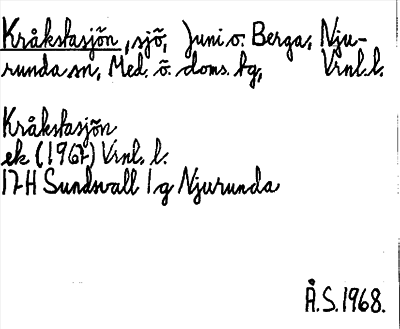 Kråkstasjön, sjö, Juni o. Berga, Nju-
runda sn, Med. ö. doms. hg, Vrnl. l.
Kråkstasjön
ek (1967) Vrnl. l.
17H Sundsvall 1g Njurunda
Å.S. 1968.